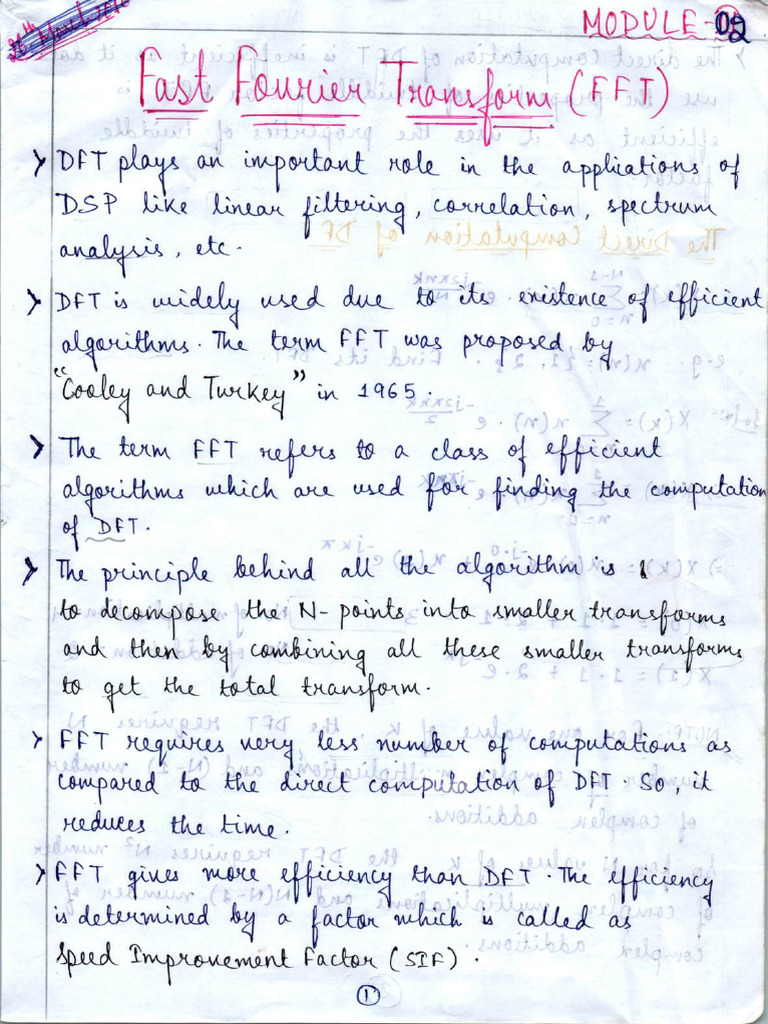 MODULE-02
Fast Fourier Transform (FFT)
> DFT plays an important role in the appliations of
DSP like linear filtering, correlation, spectrum
analysis, etc.
> DFT is widely used due to its existence of efficient
algorithms. The term FFT was proposed by
"Cooley and Turkey" in 1965.
> The term FFT refers to a class of efficient
algorithms which are used for finding the computation
of DFT.
> The principle behind all the algorithm is
to decompose the N-points into smaller transforms
and then by combining all these smaller transforms
to get the total transform.
> FFT requires very less number of computations as
compared to the direct computation of DFT. So, it
reduces the time.
> FFT gives more efficiency than DFT. The efficiency
is determined by a factor which is called as
Speed Improvement Factor (SIF).
1